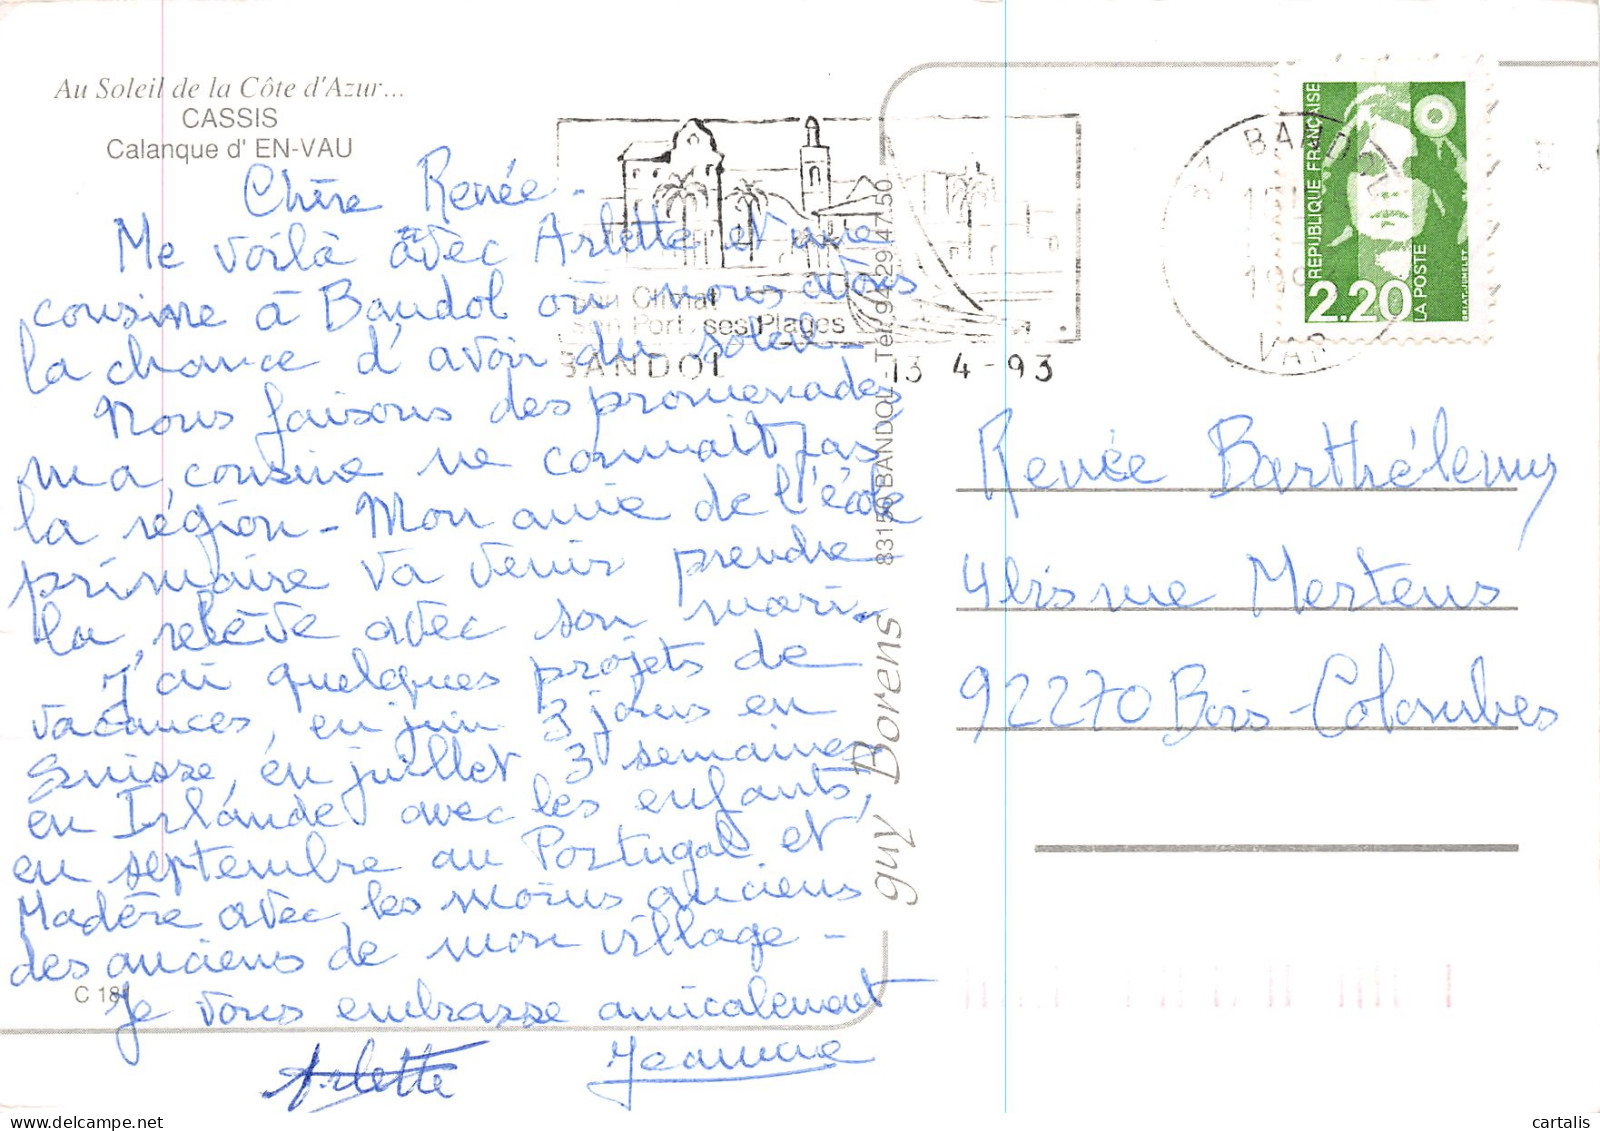 Au Soleil de la Côte d'Azur...
CASSIS
Calanque d' EN-VAU
Chère Renée -
Me voilà avec Arlette et une
cousine à Bandol où nous avons
la chance d'avoir du soleil -
Nous faisons des promenades
ma cousine ne connaît pas
la région - Mon amie de l'école
primaire va venir prendre
la relève avec son mari.
J'ai quelques projets de
vacances, en juin 3 jours en
Suisse, en juillet 3 semaines
en Irlande avec les enfants,
en septembre au Portugal et
Madère avec les moins anciens
des anciens de mon village -
Je vous embrasse amicalement
Arlette Jeannine
C 18
guy Borens 83150 BANDOL - Tél. 94 29 47 50
Son Climat
Son Port, ses Plages
BANDOL
13 4 - 93
83 BANDOL
VAR
RÉPUBLIQUE FRANÇAISE
2.20
LA POSTE
BRIAT-JUMELET
Renée Barthélemy
4 bis rue Mertens
92270 Bois-Colombes
cartalis
delcampe.net